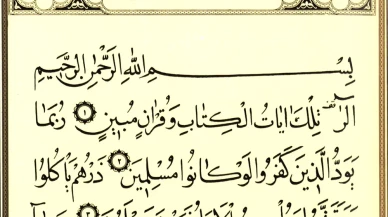 بِسْمِ اللّٰهِ الرَّحْمٰنِ الرَّحٖيمِ
الٓرٰ تِلْكَ اٰيَاتُ الْكِتَابِ وَقُرْاٰنٍ مُبٖينٍ ١ رُبَمَا
يَوَدُّ الَّذٖينَ كَفَرُوا لَوْ كَانُوا مُسْلِمٖينَ ٢ ذَرْهُمْ يَأْكُلُوا